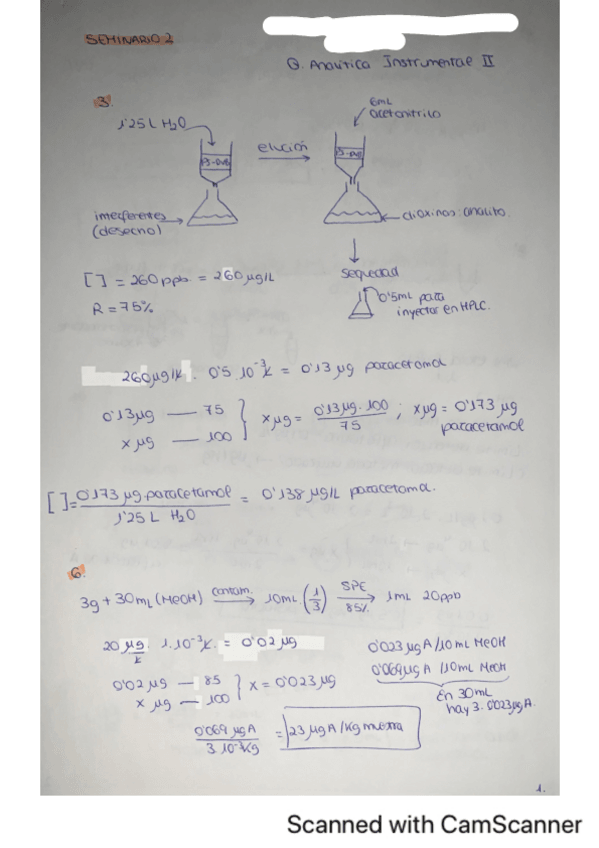 SEMINARIO 2
Q. Analítica Instrumental II
3.
1'25L H2O
PS-DVB
elución
6mL
acetonitrilo
PS-DVB
interferentes
(desecho)
dioxinas: analito.
sequedad
0'5mL para
inyectar en HPLC.
[ ] = 260 ppb = 260 µg/L
R = 75%
260 µg/L · 0'5 · 10⁻³ L = 0'13 µg paracetamol
0'13 µg — 75
x µg — 100
x µg = 0'13 µg · 100 / 75 ; x µg = 0'173 µg
paracetamol
[ ] = 0'173 µg paracetamol / 1'25 L H2O = 0'138 µg/L paracetamol.
6.
3g + 30mL (MeOH) → 10mL (1/3) SPE 85% → 1mL 20ppb
20 µg/L · 1·10⁻³ L = 0'02 µg
0'02 µg — 85
x µg — 100
x = 0'023 µg
0'023 µg A / 10 mL MeOH
0'069 µg A / 10 mL MeOH
En 30mL
hay 3 · 0'023 µg A.
0'069 µg A / 3·10⁻³ kg = 23 µg A / kg muestra
1.
Scanned with CamScanner